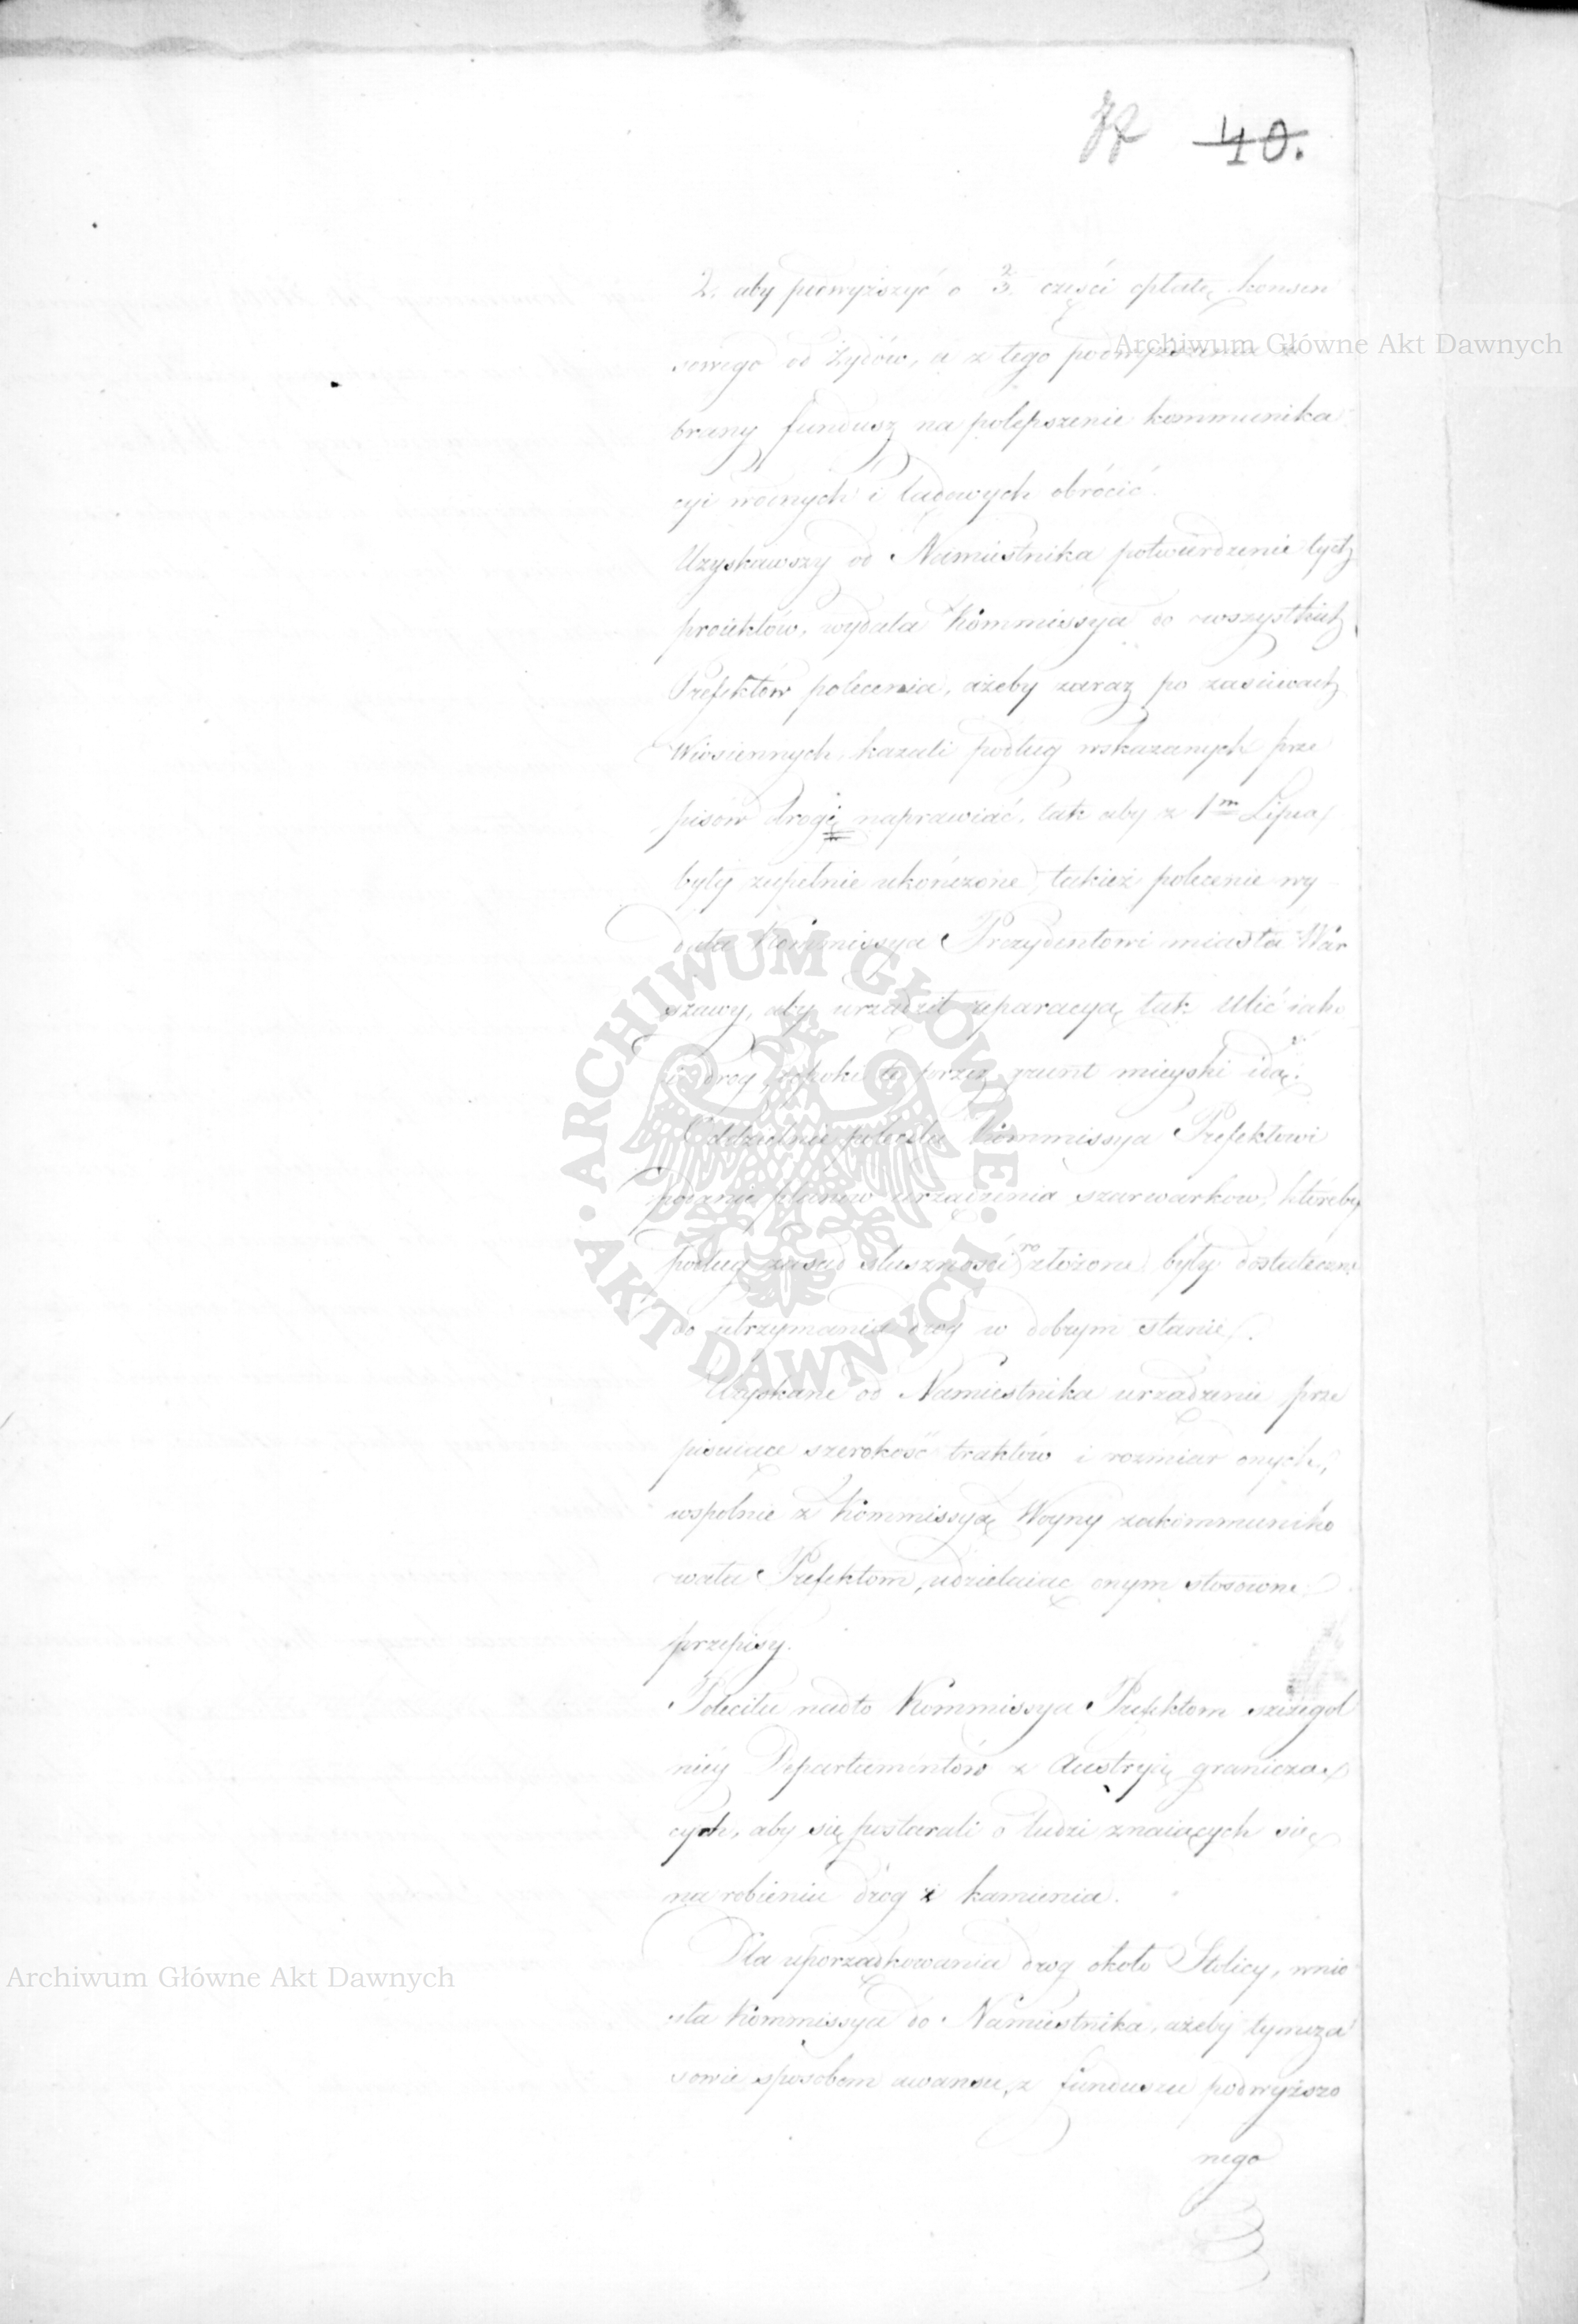 40.
2. aby podwyższyć o 2/3. części opłatę konsen
sowego od Żydów, a z tego podwyższenia ze
brany fundusz na polepszenie kommunika
cyi wodnych i lądowych obrócić.
Uzyskawszy od Namiestnika potwierdzenie tych
proiektów, wydała Kommissya do wszystkich
Prefektów polecenia, ażeby zaraz po zasiewach
Wiosiennych kazali podług wskazanych prze
pisów drogi naprawiać, tak aby z 1m Lipca
były zupełnie ukończone, takież polecenie wy
dała Kommissya Prezydentowi miasta War
szawy, aby urządził reparacyą tak Ulic iako
i drog, dopoki te przez grunt mieyski idą.
Oddzielnie poleciła Kommissya Prefektowi
planów urządzenia szarwarkow, któreby
podług zasad słuszności rozłożone były dostateczne
do utrzymania drog w dobrym stanie.
Uzyskane od Namiestnika urządzenie prze
pisuiące szerokość traktów i rozmiar onych,
wspolnie z Kommissyą Woyny zakommuniko
wała Prefektom, udzielaiąc onym stosowne
przepisy.
Poleciła nadto Kommissya Prefektom szczegol
niey Departamentów z Austryią granicza
cych, aby się postarali o ludzi znaiących się
na robieniu drog z kamienia.
Dla uporządkowania drog około Stolicy, wnio
sła Kommissya do Namiestnika, ażeby tymcza
sowie sposobem awansu, z funduszu podwyższo
nego
Archiwum Główne Akt Dawnych
Archiwum Główne Akt Dawnych
ARCHIWUM GŁÓWNE · AKT DAWNYCH ·